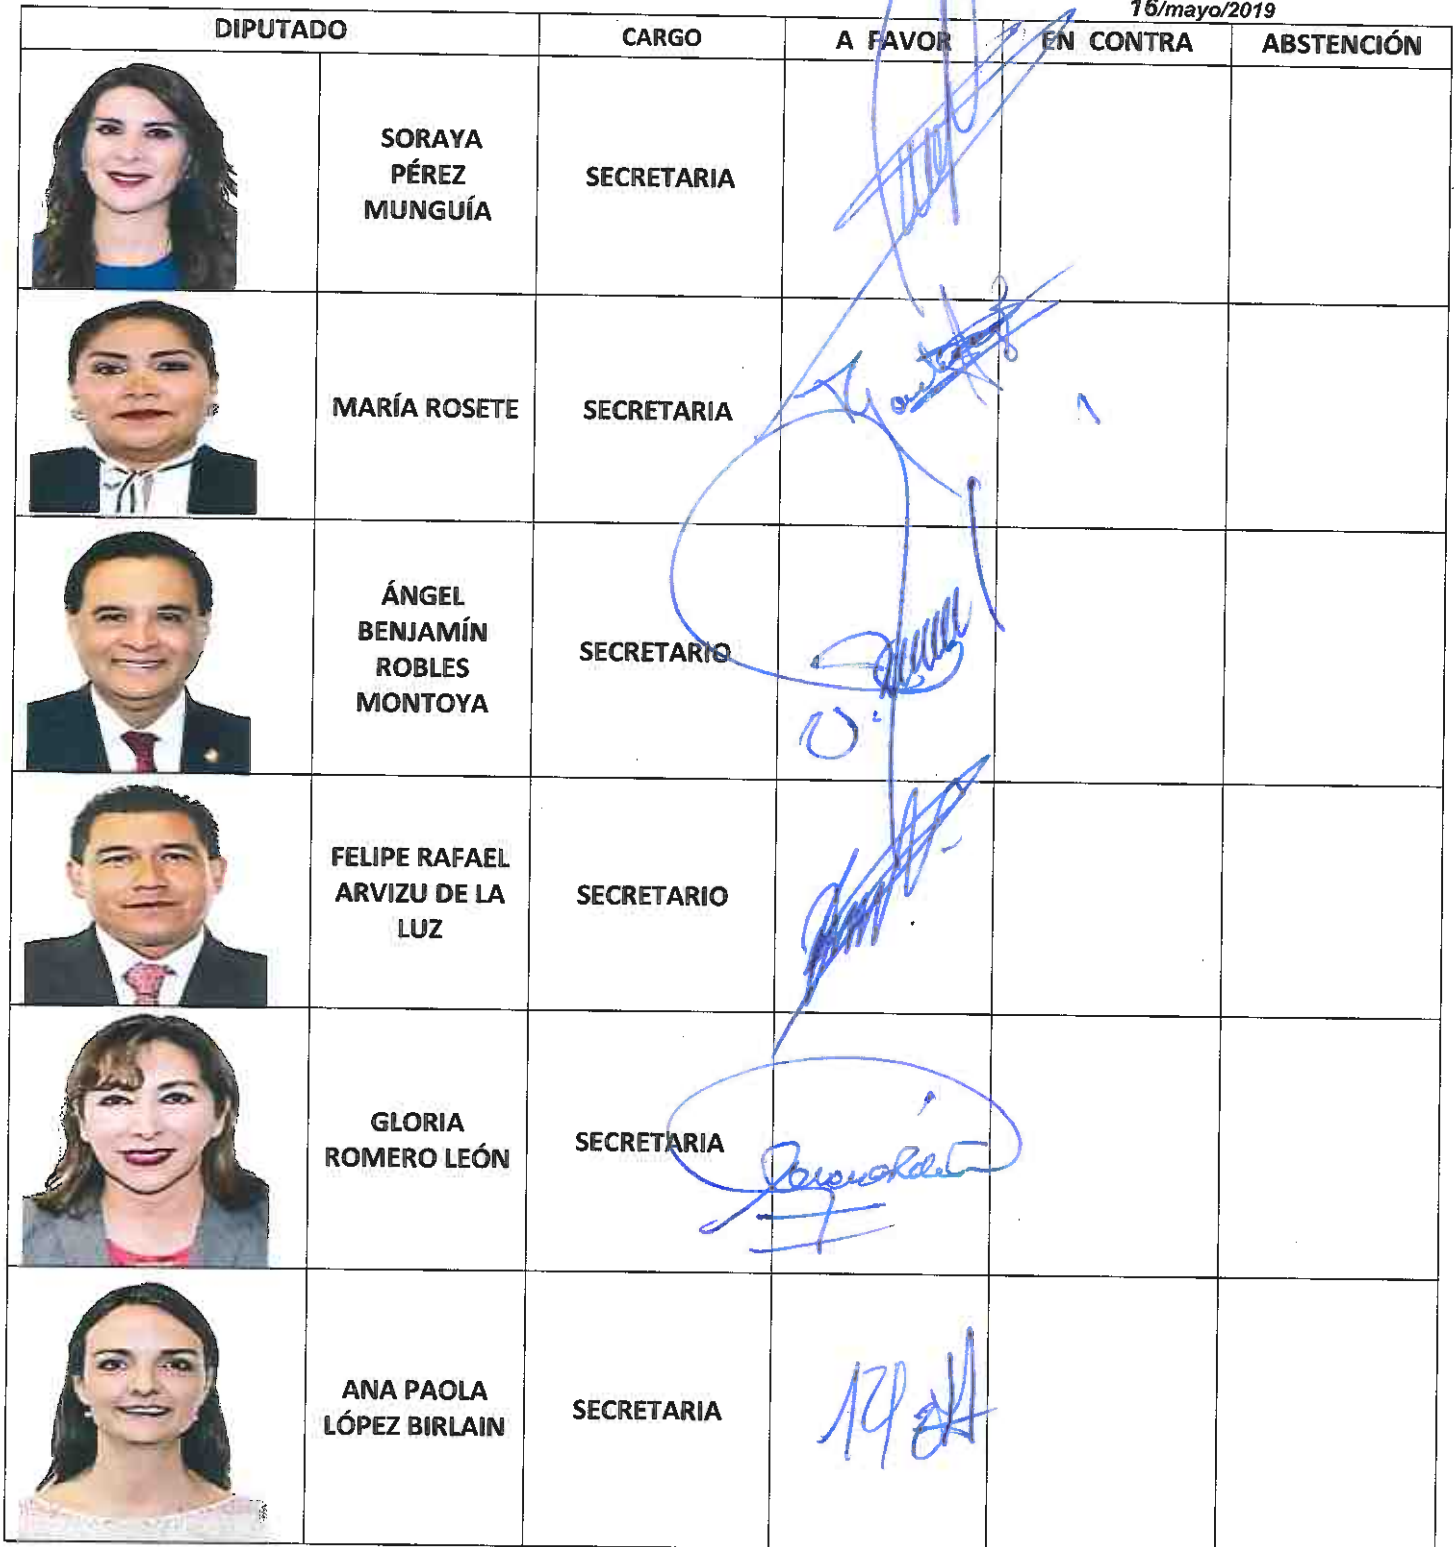 16/mayo/2019
DIPUTADO CARGO A FAVOR EN CONTRA ABSTENCIÓN
SORAYA
PÉREZ
MUNGUÍA
SECRETARIA
MARÍA ROSETE SECRETARIA
ÁNGEL
BENJAMÍN
ROBLES
MONTOYA
SECRETARIO
FELIPE RAFAEL
ARVIZU DE LA
LUZ
SECRETARIO
GLORIA
ROMERO LEÓN
SECRETARIA
ANA PAOLA
LÓPEZ BIRLAIN
SECRETARIA